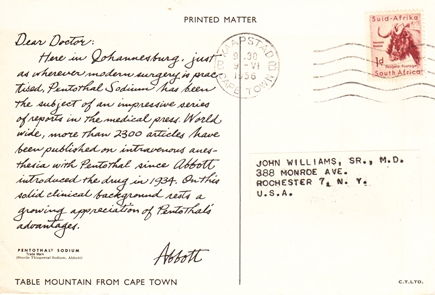 PRINTED MATTER
Dear Doctor:
Here in Johannesburg, just
as wherever modern surgery is prac-
tised, Pentothal Sodium has been
the subject of an impressive series
of reports in the medical press. World
wide, more than 2300 articles have
been published on intravenous anes-
thesia with Pentothal since Abbott
introduced the drug in 1934. On this
solid clinical background rests a
growing appreciation of Pentothal's
advantages.
Abbott
PENTOTHAL® SODIUM
Trade Mark
(Sterile Thiopental Sodium, Abbott)
TABLE MOUNTAIN FROM CAPE TOWN
KAAPSTAD
1956
CAPE TOWN
Suid-Afrika
1d
South Africa
JOHN WILLIAMS, SR., M.D.
388 MONROE AVE.
ROCHESTER 7, N. Y.
U.S.A.
C.T.LTD.